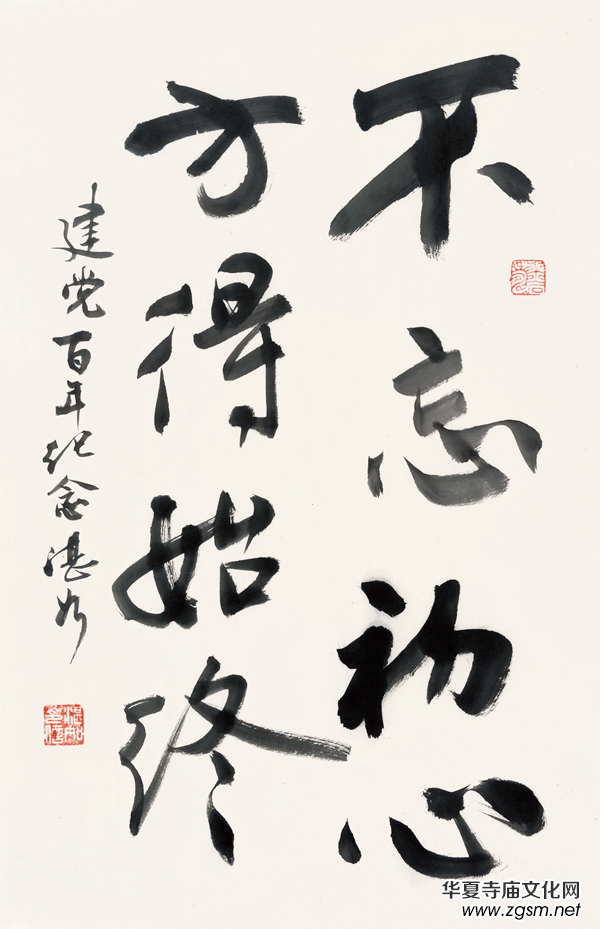 不忘初心
方得始终
建党百年纪念湛如
华夏寺庙文化网
www.zgsm.net